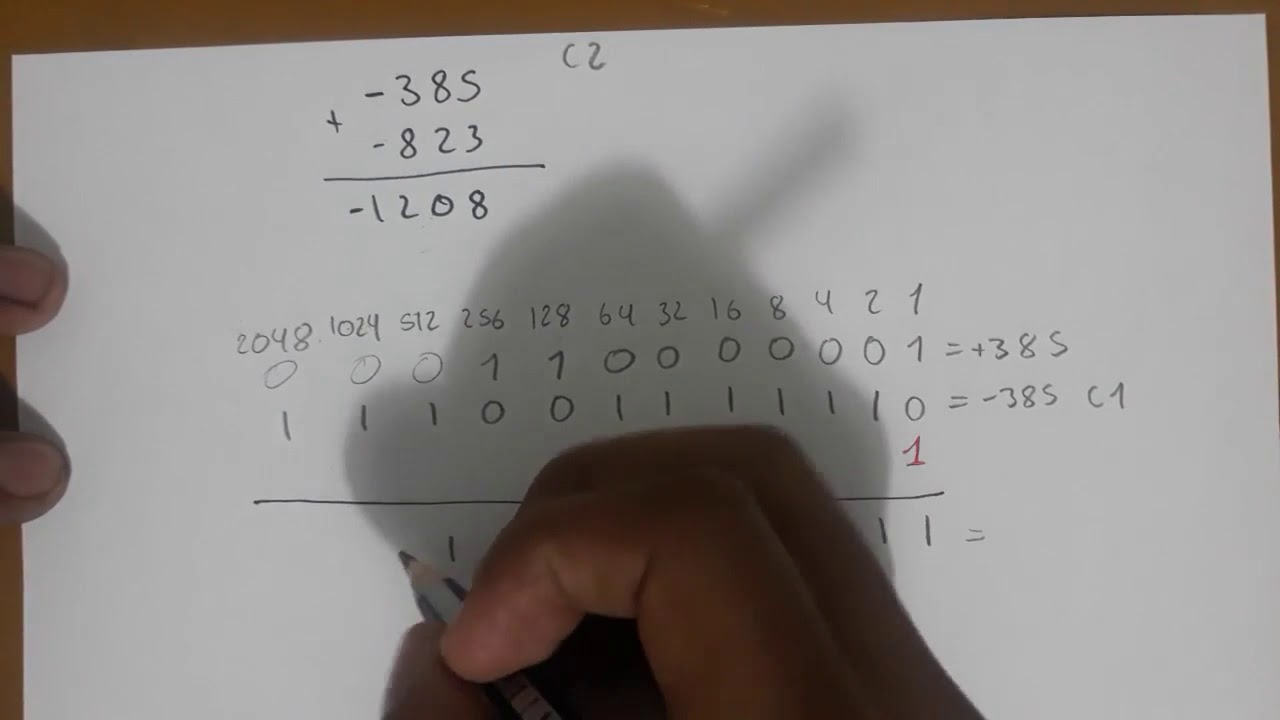 C2
-385
+
-823
-1208
2048 1024 512 256 128 64 32 16 8 4 2 1
0 0 0 1 1 0 0 0 0 0 0 1 = +385
1 1 1 0 0 1 1 1 1 1 1 0 = -385 C1
1
1 1 1 =